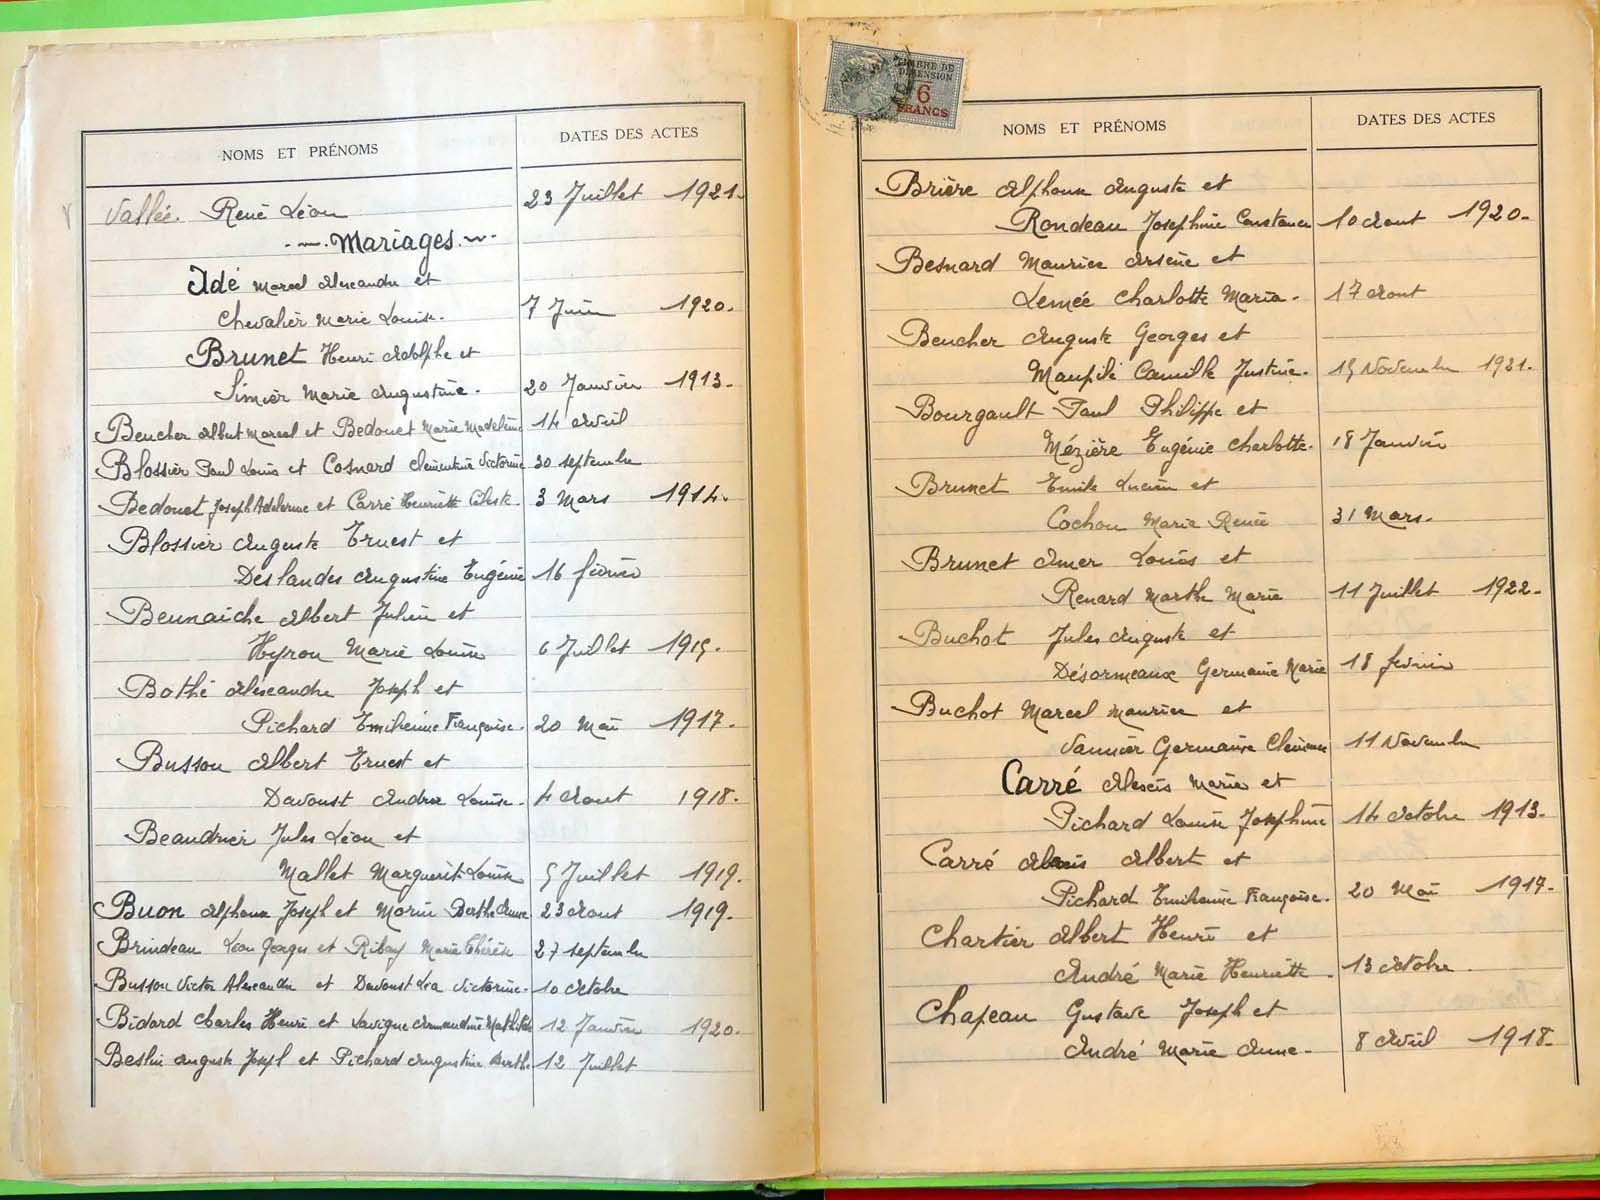 NOMS ET PRÉNOMS DATES DES ACTES
Vallée. René Léon 23 Juillet 1921.
Mariages.
Adé Marcel Alexandre et
Chevalier Marie Louise. 7 Juin 1920.
Brunet Henri Adolphe et
Simier Marie Augustine. 20 Janvier 1913.
Beucher Albert Marcel et Bedouet Marie Madeleine 14 Avril
Blossier Paul Louis et Cosnard Clémentine Victorine 30 septembre
Bedouet Joseph Adelerme et Carré Henriette Céleste. 3 Mars 1914.
Blossier Auguste Ernest et
Deslandes Augustine Eugénie 16 février
Beunaiche Albert Julien et
Hyron Marie Louise 6 Juillet 1915.
Bothé Alexandre Joseph et
Pichard Emilienne Françoise. 20 Mai 1917.
Busson Albert Ernest et
Davoust Andrée Louise. 4 Aout 1918.
Beaudrier Jules Léon et
Mallet Marguerite Louise 5 Juillet 1919.
Buon Alphonse Joseph et Morin Berthe Anne 23 Aout 1919.
Brindeau Léon Georges et Ribay Marie Thérèse 27 septembre
Busson Victor Alexandre et Davoust Léa Victorine. 10 Octobre
Bidard Charles Henri et Lavigne Armandine Mathilde 12 Janvier 1920.
Beslin Auguste Joseph et Pichard Augustine Berthe 12 Juillet
TIMBRE DE
DIMENSION
6
FRANCS
NOMS ET PRÉNOMS DATES DES ACTES
Brière Alphonse Auguste et
Rondeau Joséphine Constance 10 Aout 1920.
Besnard Maurice Arsène et
Lemée Charlotte Maria. 17 Aout
Beucher Auguste Georges et
Maupilé Camille Justine. 15 Novembre 1921.
Bourgault Paul Philippe et
Mézière Eugénie Charlotte. 18 Janvier
Brunet Emile Lucien et
Cochon Marie Renée 31 Mars.
Brunet Amer Louis et
Renard Marthe Marie 11 Juillet 1922.
Buchot Jules Auguste et
Désormeaux Germaine Marie 18 février
Buchot Marcel Maurice et
Vannier Germaine Clémence 11 Novembre
Carré Alexis Marie et
Pichard Louise Joséphine 14 Octobre 1913.
Carré Alexis Albert et
Pichard Emilienne Françoise. 20 Mai 1917.
Chartier Albert Henri et
André Marie Henriette. 13 Octobre.
Chapeau Gustave Joseph et
André Marie Anne. 8 Avril 1918.